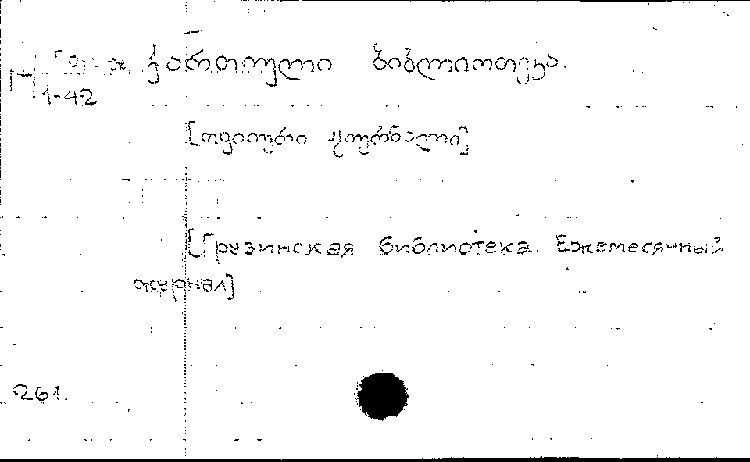 ქართული ბიბლიოთეკა.
1-42
[თვიური ჟურნალი]
[Грузинская библиотека. Ежемесячный
журнал]
261.